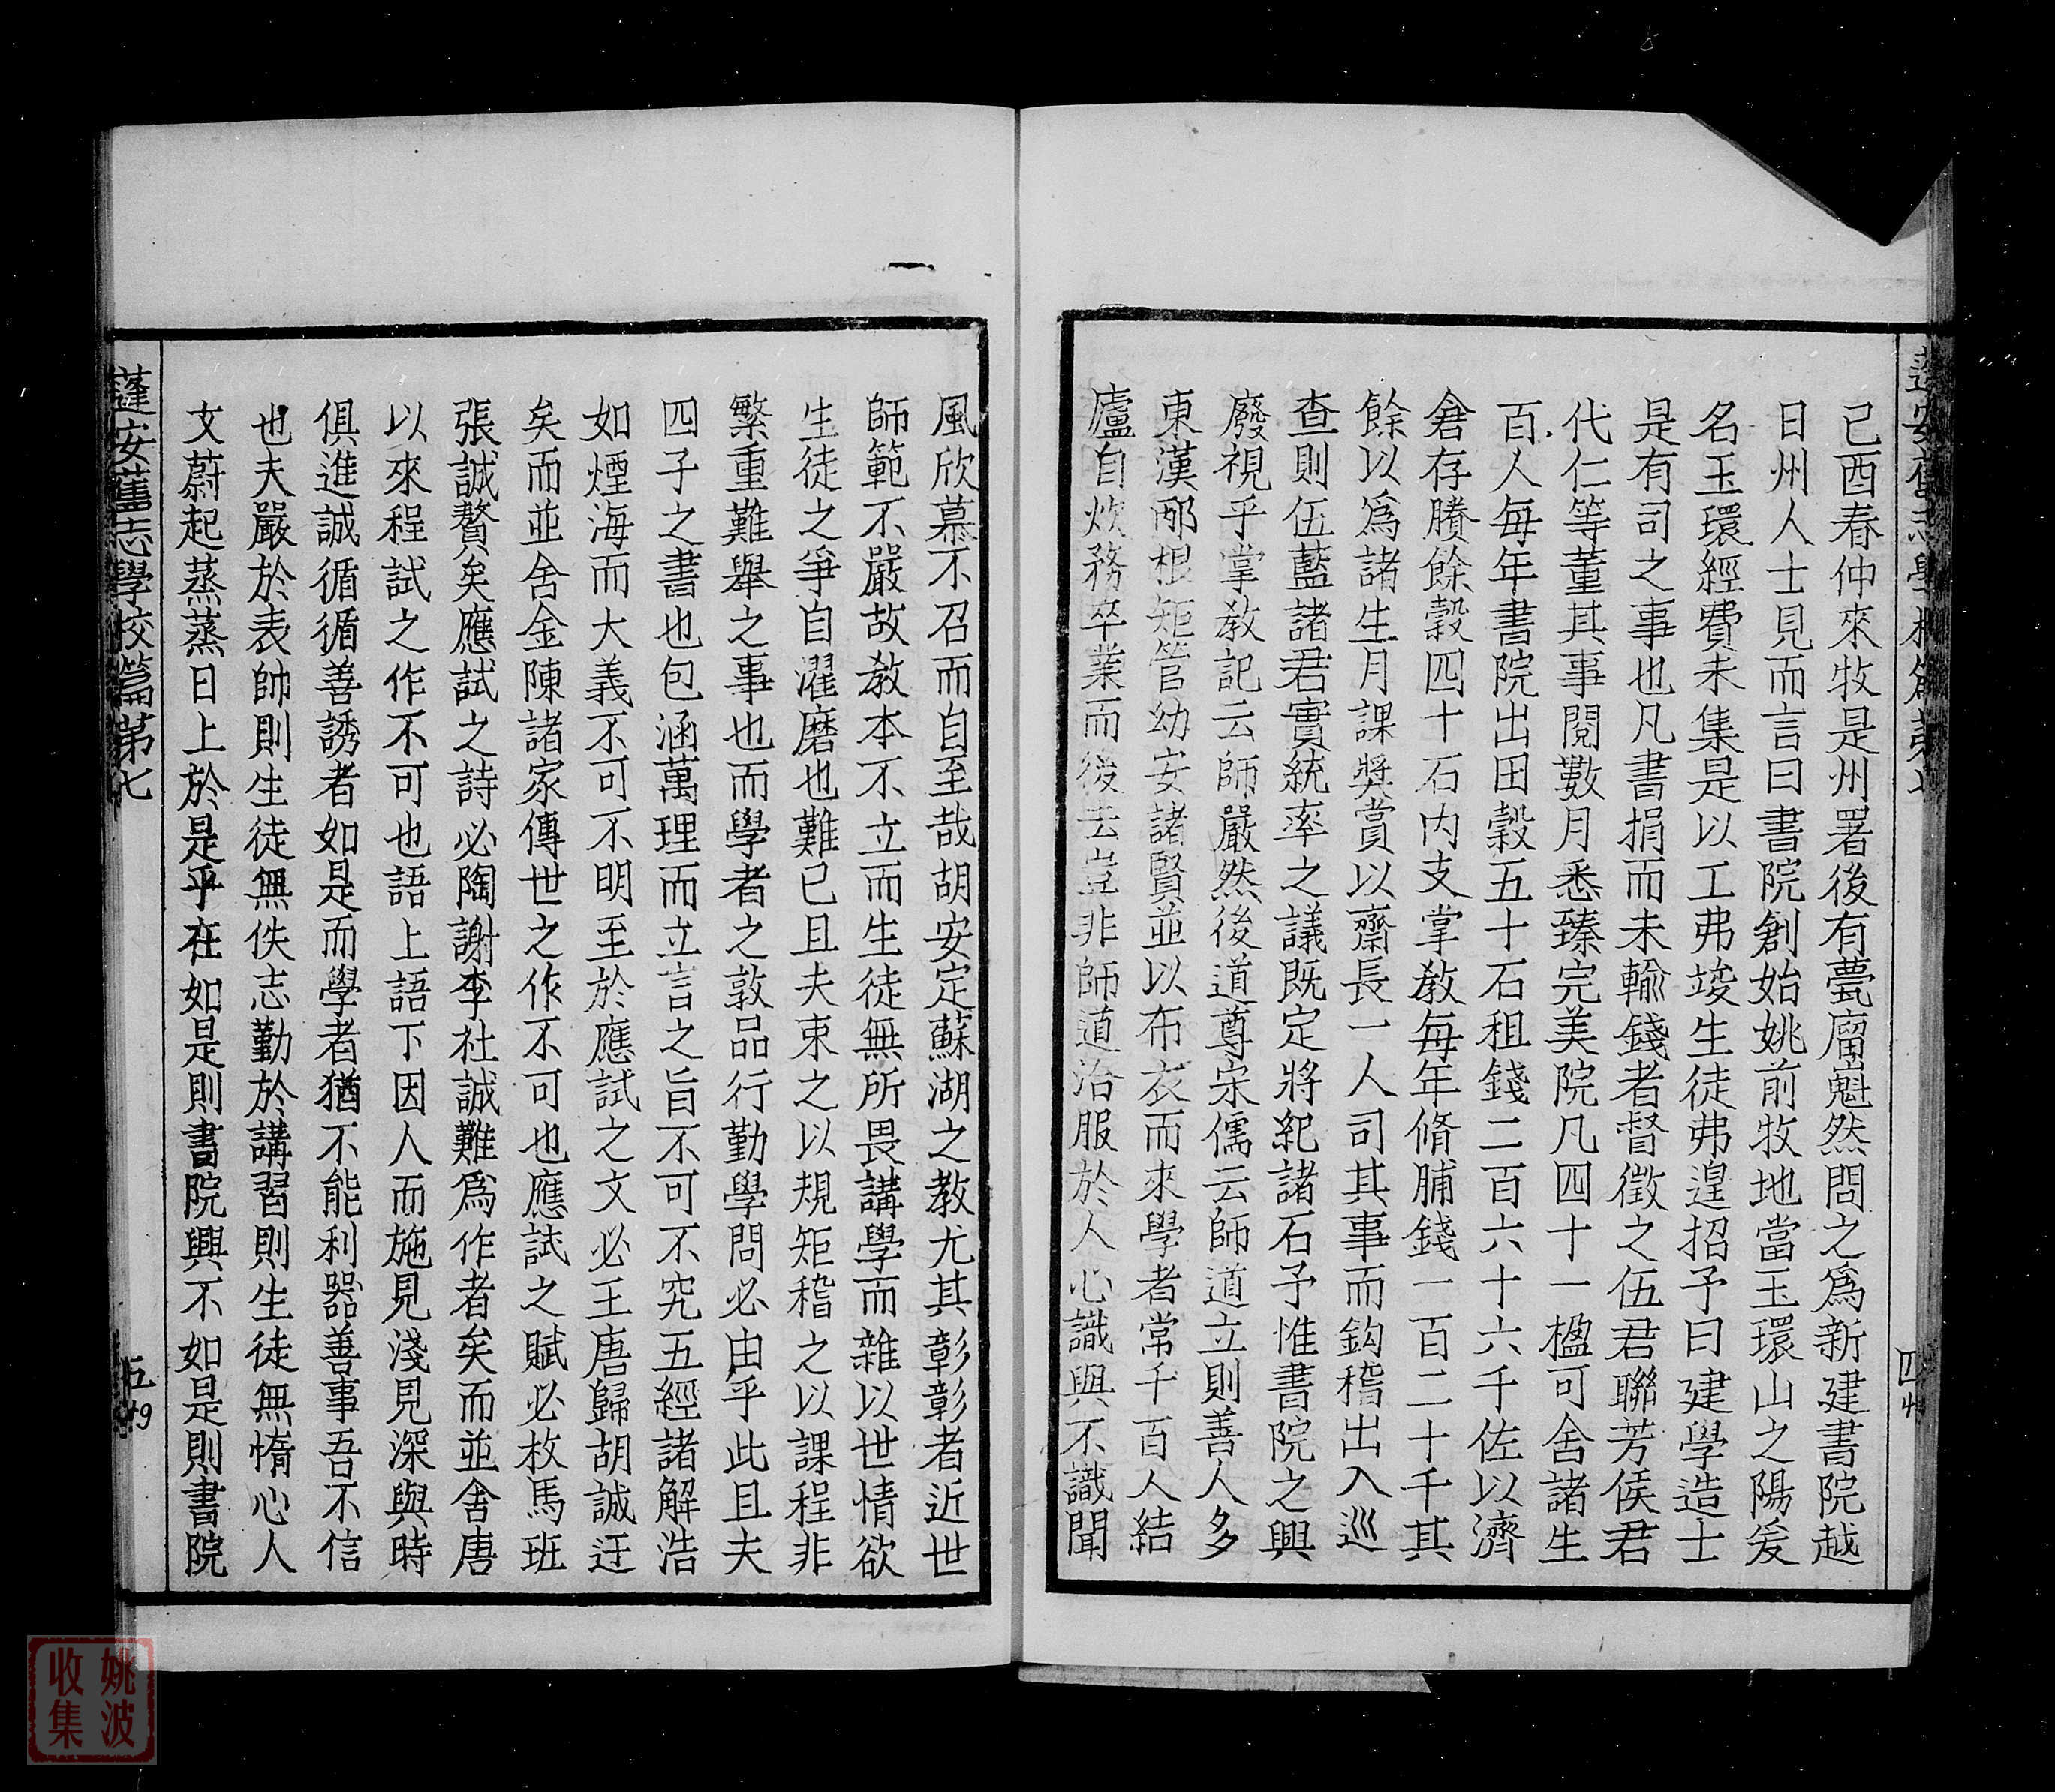 蓬安舊志學校篇第七
四
己酉春仲來牧是州署後有甍廇嵬然問之為新建書院越
日州人士見而言曰書院創始姚前牧地當玉環山之陽爰
名玉環經費未集是以工弗竣生徒弗遑招予曰建學造士
是有司之事也凡書捐而未輸錢者督徵之伍君聯芳侯君
代仁等董其事閱數月悉臻完美院凡四十一楹可舍諸生
百人每年書院出田穀五十石租錢二百六十六千佐以濟
倉存賸餘穀四十石內支掌教每年脩脯錢一百二十千其
餘以為諸生月課獎賞以齋長一人司其事而鈎稽出入巡
查則伍藍諸君實統率之議既定將紀諸石予惟書院之興
廢視乎掌教記云師嚴然後道尊宋儒云師道立則善人多
東漢邴根矩管幼安諸賢並以布衣而來學者常千百人結
廬自炊務卒業而後去豈非師道洽服於人心識與不識聞
風欣慕不召而自至哉胡安定蘇湖之教尤其彰彰者近世
師範不嚴故教本不立而生徒無所畏講學而雜以世情欲
生徒之爭自濯磨也難已且夫束之以規矩稽之以課程非
繁重難舉之事也而學者之敦品行勤學問必由乎此且夫
四子之書也包涵萬理而立言之旨不可不究五經諸解浩
如煙海而大義不可不明至於應試之文必王唐歸胡誠迂
矣而並舍金陳諸家傳世之作不可也應試之賦必枚馬班
張誠贅矣應試之詩必陶謝李杜誠難為作者矣而並舍唐
以來程試之作不可也語上語下因人而施見淺見深與時
俱進誠循循善誘者如是而學者猶不能利器善事吾不信
也夫嚴於表帥則生徒無佚志勤於講習則生徒無惰心人
文蔚起蒸蒸日上於是乎在如是則書院興不如是則書院
蓬安舊志學校篇第七
五
49
姚波
收集